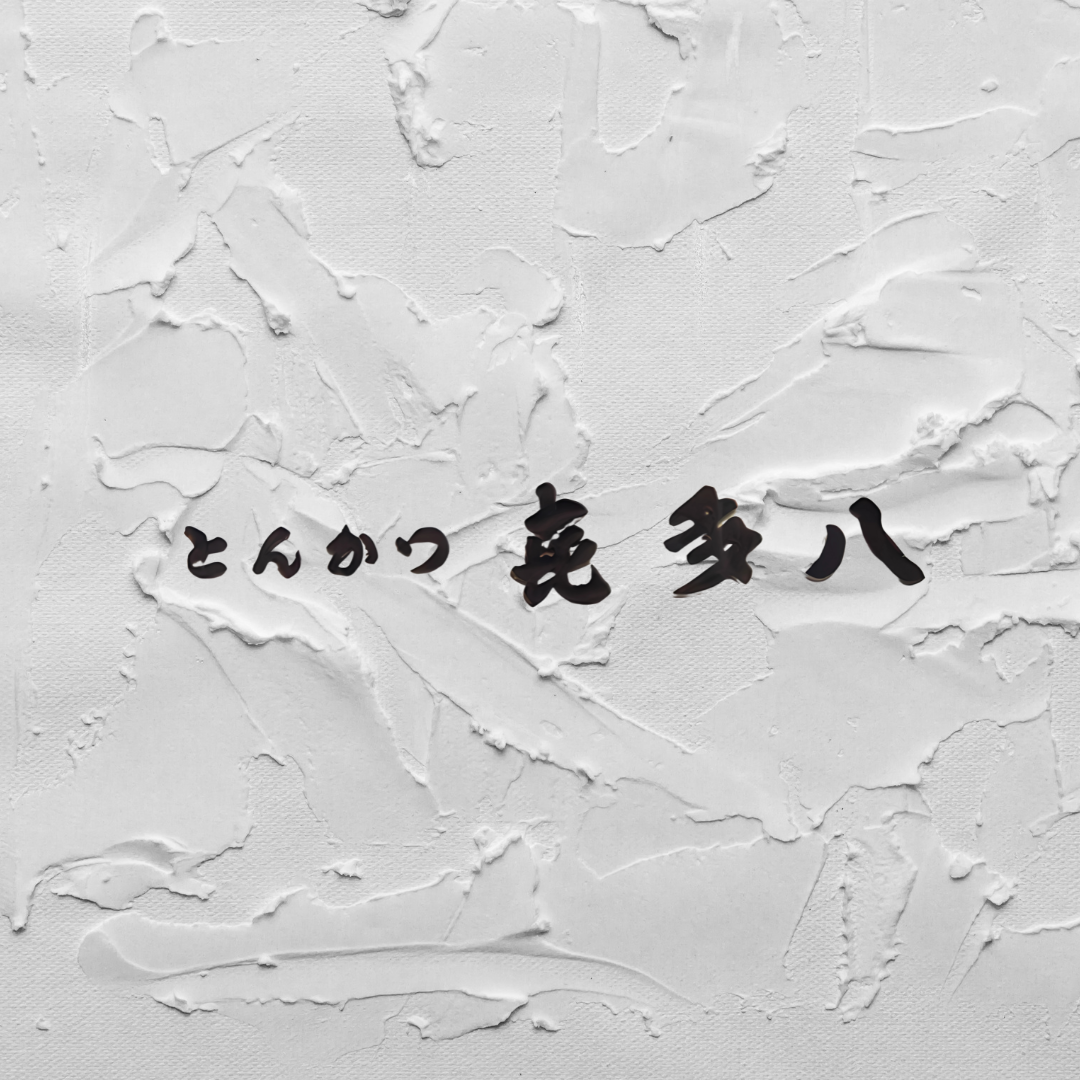 とんかつ 喜多八